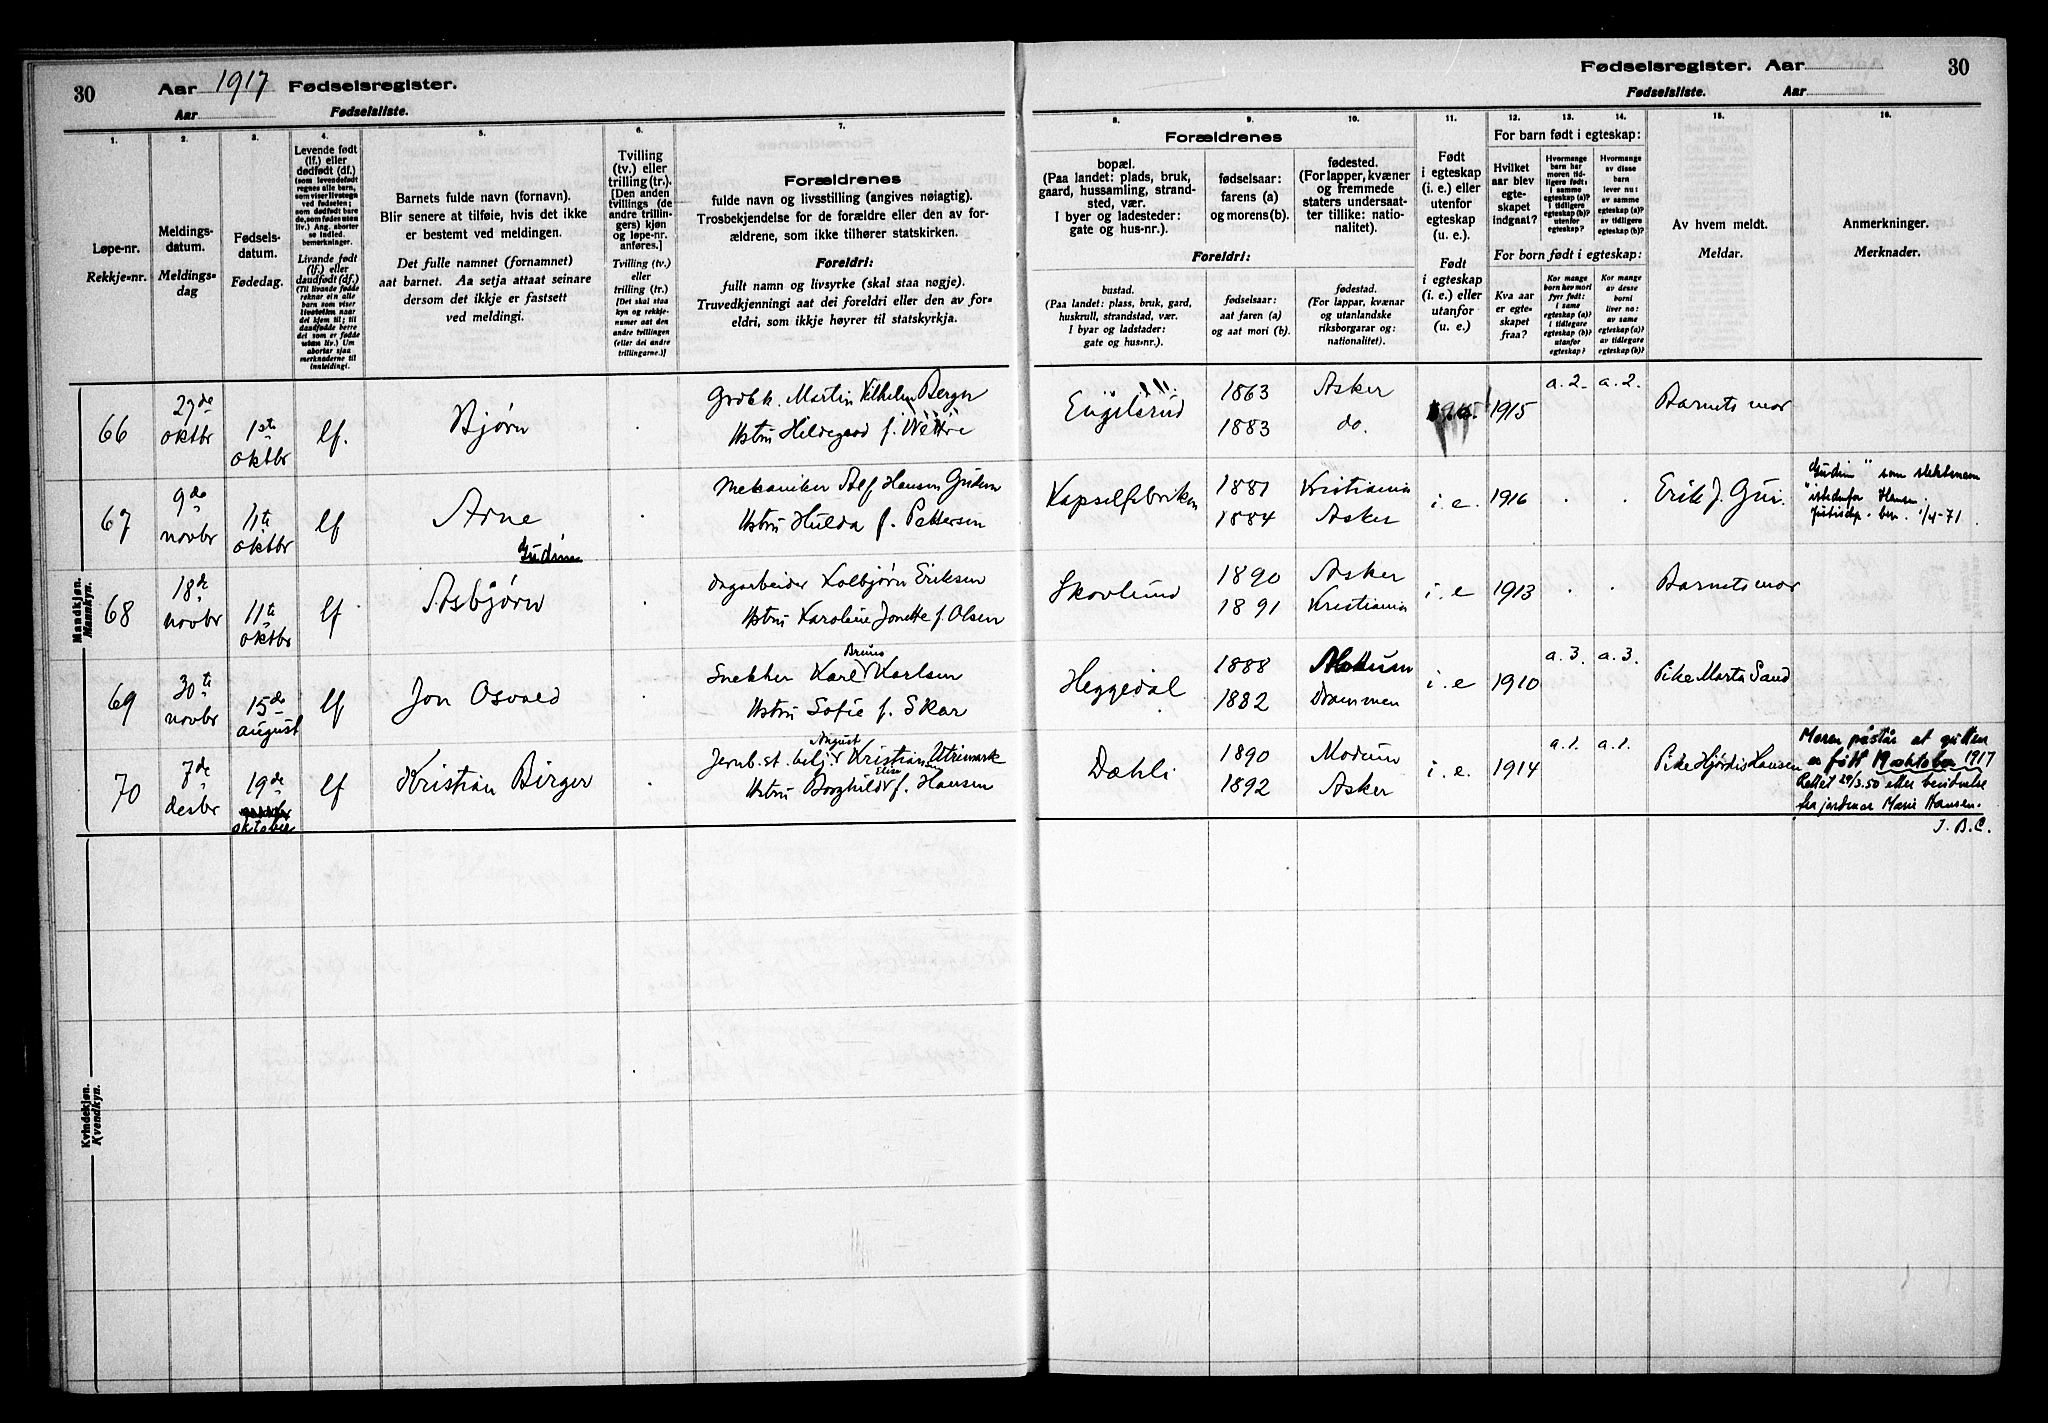 30 Aar 1917 Fødselsregister.
Aar Fødselsliste.
Fødselsregister. Aar 30
Fødselsliste. Aar
1.
Løpe-nr.
Rekkje-nr.
2.
Meldings-
datum.
Meldings-
dag
3.
Fødsels-
datum.
Fødedag.
4.
Levende født
(lf.) eller
dødfødt (df.)
(som levendefødt
regnes alle barn,
som viser livstegn
ved fødselen;
som dødfødt bare
de, som fødes uten
liv.) Ang. aborter
se indled.
bemerkninger.
Livande født
(lf.) eller
daudfødt (df.)
(Til livande fødde
reknar ein alle
barn som viser
livsteikn naar
dei kjem til; til
daudfødde berre
dei som er fødde
utan liv.) Um
abortar sjaa
merknaderne til
innleidingi.
5.
Barnets fulde navn (fornavn).
Blir senere at tilføie, hvis det ikke
er bestemt ved meldingen.
Det fulle namnet (fornamnet)
aat barnet. Aa setja attaat seinare
dersom det ikkje er fastsett
ved meldingi.
6.
Tvilling
(tv.) eller
trilling (tr.).
[Den anden
tvillings (de
andre trillin-
gers) kjøn
og løpe-nr.
anføres.]
Tvilling (tv.)
eller
trilling (tr.)
[Det skal staa
kyn og rekkje-
numer aat den
andre tvillingen
(eller dei andre
trillingarne.)]
7.
Forældrenes
fulde navn og livsstilling (angives nøiagtig).
Trosbekjendelse for de forældre eller den av for-
ældrene, som ikke tilhører statskirken.
Foreldri:
fullt namn og livsyrke (skal staa nøgje).
Truvedkjenningi aat dei foreldri eller den av for-
eldri, som ikkje høyrer til statskyrkja.
8.
Forældrenes
bopæl.
(Paa landet: plads, bruk,
gaard, hussamling, strand-
sted, vær.
I byer og ladesteder:
gate og hus-nr.).
Foreldri:
bustad.
(Paa landet: plass, bruk, gard,
huskrull, strandstad, vær.
I byar og ladstader:
gate og hus-nr.).
9.
fødselsaar:
farens (a)
og morens (b).
fødselsaar:
aat faren (a)
og aat mori (b).
10.
fødested.
(For lapper, kvæner
og fremmede
staters undersaat-
ter tillike: natio-
nalitet).
fødestad.
(For lappar, kvænar
og utanlandske
riksborgarar og:
nationalitet).
11.
Født
i egteskap
(i. e.) eller
utenfor
egteskap
(u. e.).
Født
i egteskap
(i. e.) eller
utanfor
(u. e.)
12. 13. 14.
For barn født i egteskap:
Hvilket
aar blev
egte-
skapet
indgaat?
Hvormange
barn har
moren tid-
ligere født:
i samme
egteskap (a)?
i tidligere
egteskap (b)?
utenfor
egteskap?
Hvormange
av disse
barn
lever nu:
av samme
egteskap (a)?
av tidligere
egteskap (b)?
For born født i egteskap:
Kva aar
er egte-
skapet
fraa?
Kor mange
born hev mori
fyrr født:
i same
egteskap (a)?
i tidlegare
egteskap (b)?
utanfor
egteskap?
Kor mange
av desse
borni
liver no:
av same
egteskap (a)?
av tidlegare
egteskap (b)?
15.
Av hvem meldt.
Meldar.
16.
Anmerkninger.
Merknader.
Mandkjøn.
Mannkyn.
66 29de oktbr 1ste oktbr lf. Bjørn
Martin Vilhelm Berger
Hustru Hildegard f. Wettre
Engelsrud 1863 Asker 1915 a.2. a.2. Barnets mor
1883 do.
67 9de novbr 11te oktbr lf Arne
Gudim
Mekaniker Alf Hansen Gudim
Hustru Hulda f. Pettersen
Kapselfabriken 1881 Kristiania i.e. 1916 . . Erik J. Gui.
1884 Asker
"Gudim" som slektsnavn
istedenfor Hansen.
Justisdep. bev. 1/4-71.
68 18de novbr 11te oktbr lf Asbjørn
Dagarbeider Kolbjørn Eriksen
Hustru Karoline Jonette f. Olsen
Skovlund 1890 Asker i.e 1913 . . Barnets mor
1891 Kristiania
69 30te novbr 15de august lf Jon Osvald
Bruno
Snekker Karl Karlsen
Hustru Sofie f. Skar
Heggedal 1888 Modum i.e 1910 a.3. a.3. Pike Marta Sand
1882 Drammen
70 7de desbr 19de oktober lf Kristian Birger
August
Jernb.st.betj. Kristian Utримark
Elise
Hustru Borghild f. Hansen
Dæhli 1890 Modum i.e. 1914 a.1. a.1. Pike Hjørdis Hansen
1892 Asker
Moren påstår at gutten
er født 19 oktober 1917
Rettet 29/3.50 etter bevidnelse
fra jordmor Marie Hansen.
J.B.C.
Kvindekjøn.
Kvendkyn.